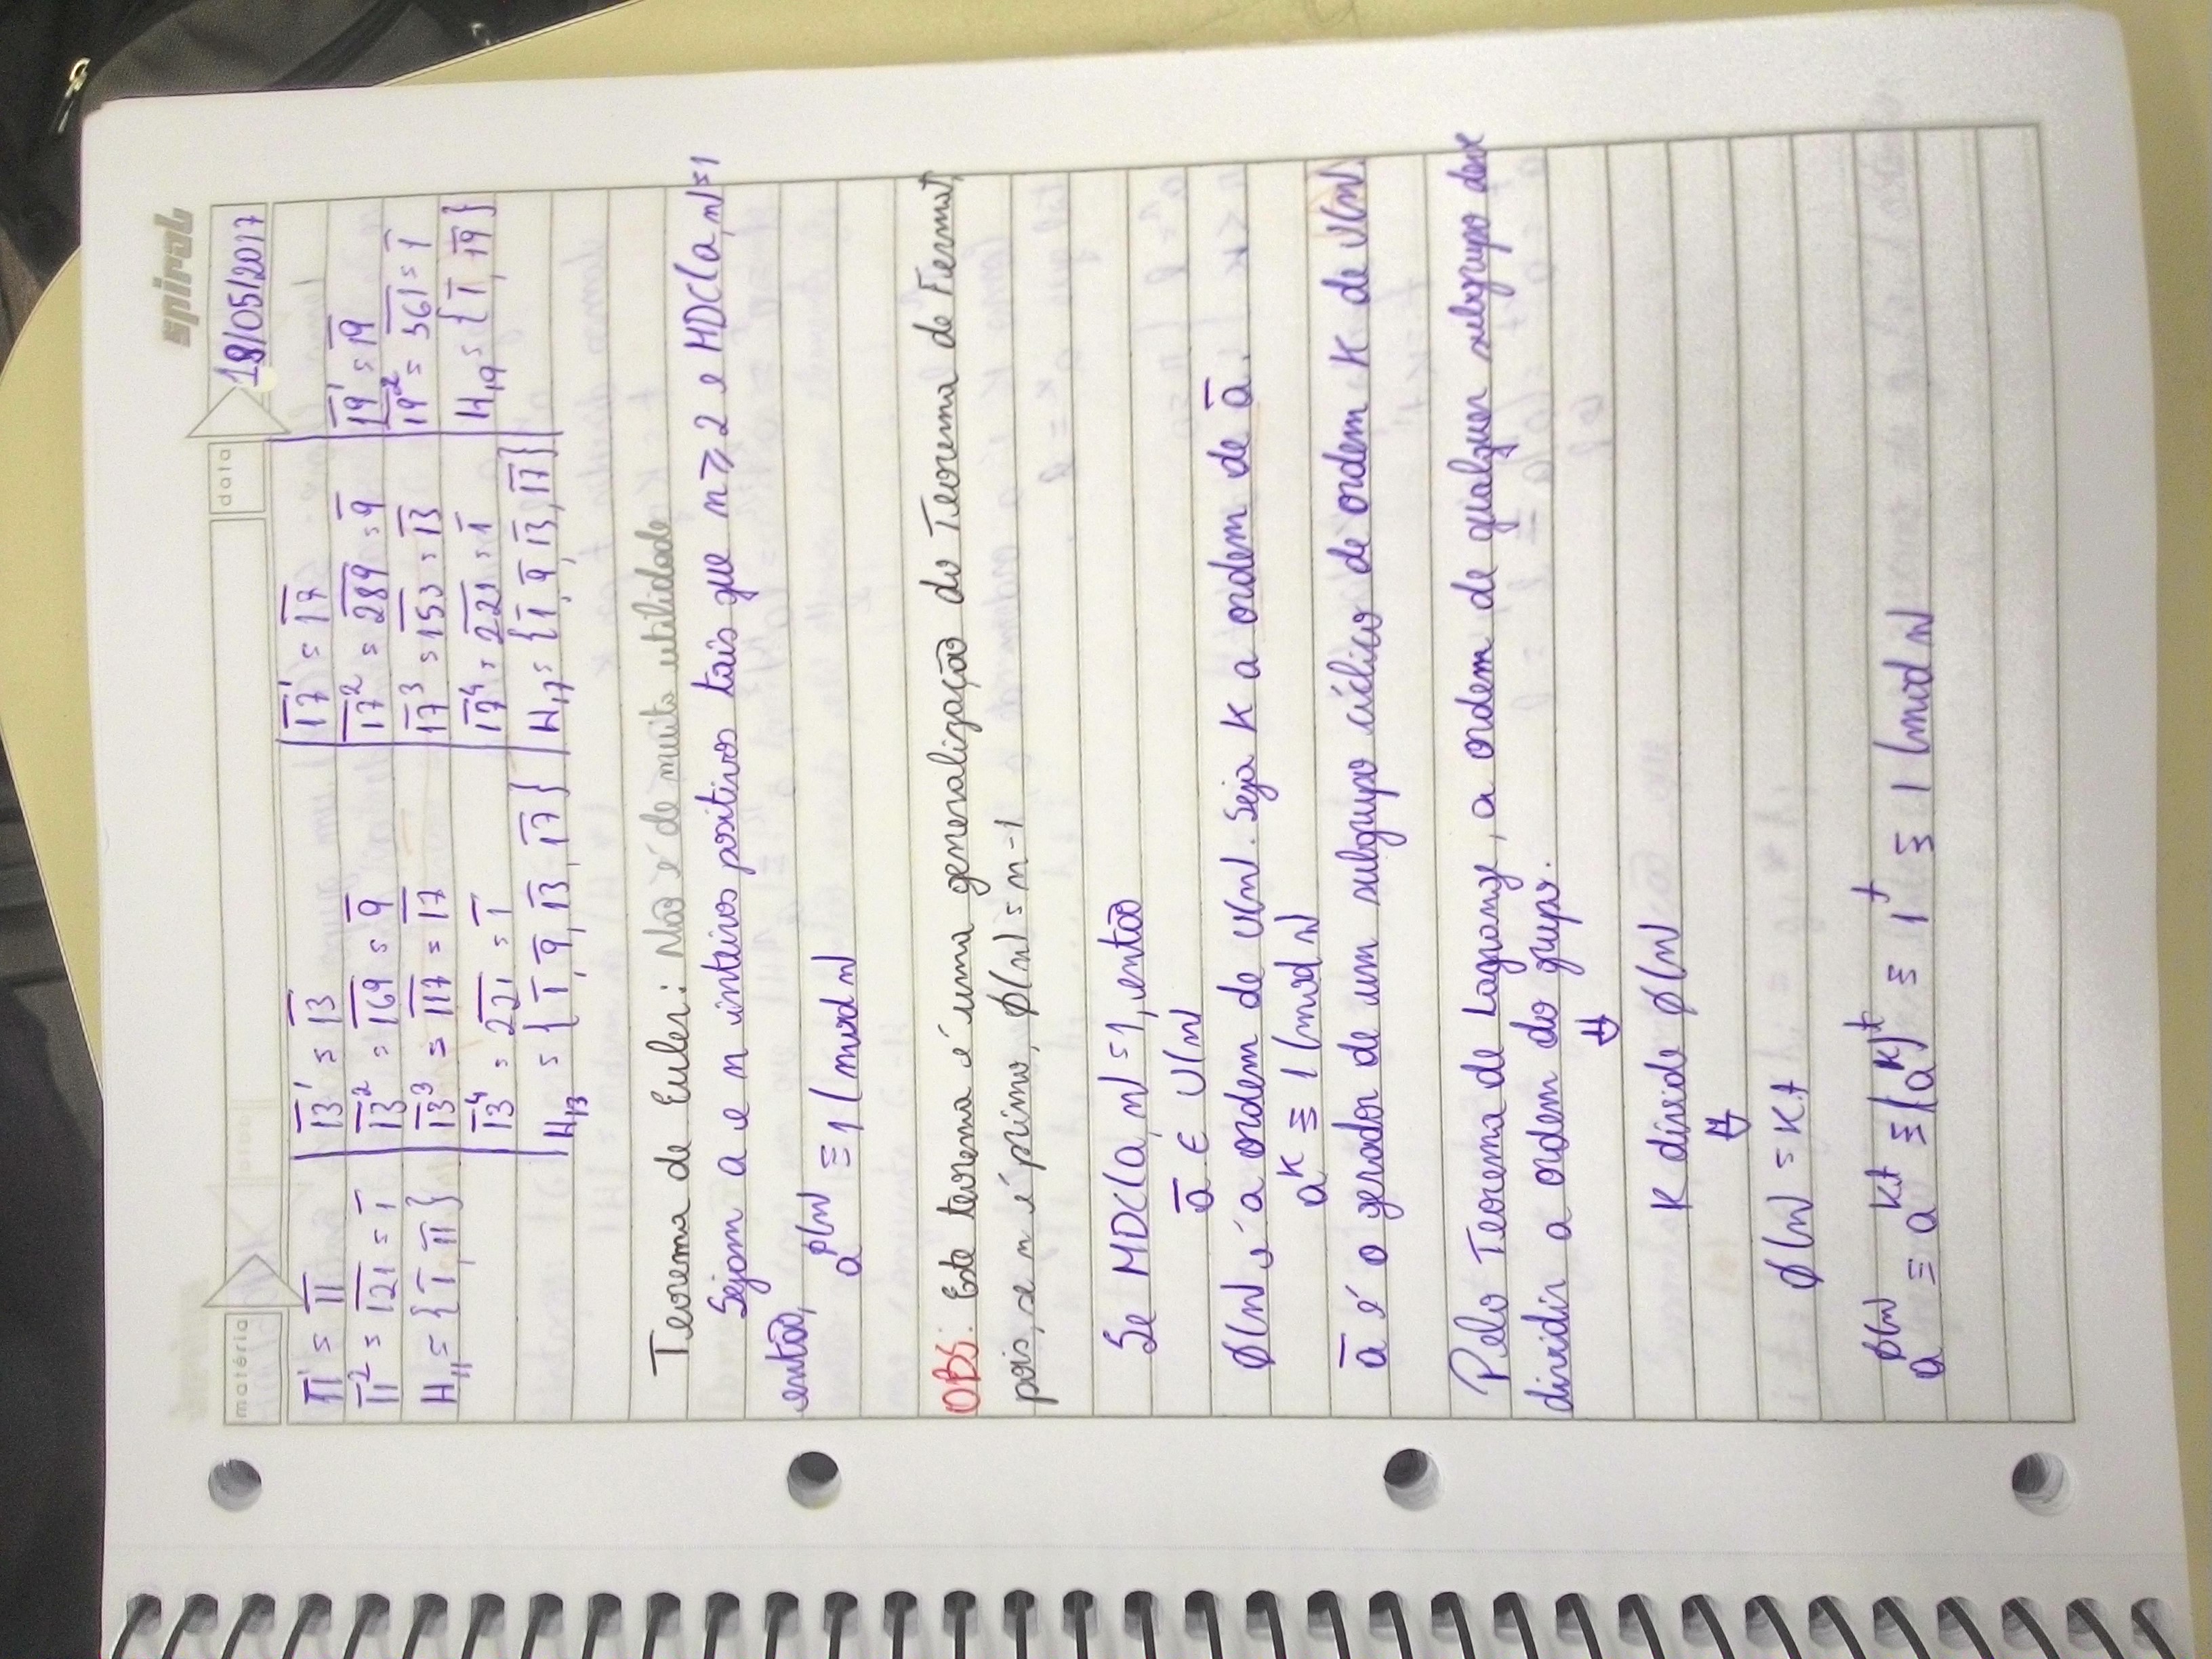 spiral
matéria
data
18/05/2017
1̅1̅¹ = 1̅1̅
1̅1̅² = 1̅2̅1̅ = 1̅
H₁₁ = {1̅, 1̅1̅}
1̅3̅¹ = 1̅3̅
1̅3̅² = 1̅6̅9̅ = 9̅
1̅3̅³ = 1̅1̅7̅ = 1̅7̅
1̅3̅⁴ = 2̅2̅1̅ = 1̅
H₁₃ = {1̅, 9̅, 1̅3̅, 1̅7̅}
1̅7̅¹ = 1̅7̅
1̅7̅² = 2̅8̅9̅ = 9̅
1̅7̅³ = 1̅5̅3̅ = 1̅3̅
1̅7̅⁴ = 2̅2̅1̅ = 1̅
H₁₇ = {1̅, 9̅, 1̅3̅, 1̅7̅}
1̅9̅¹ = 1̅9̅
1̅9̅² = 3̅6̅1̅ = 1̅
H₁₉ = {1̅, 1̅9̅}
Teorema de Euler: Não é de muita utilidade
Sejam a e n inteiros positivos tais que n ≥ 2 e MDC(a, n) = 1
então,
a^ϕ(n) ≡ 1 (mod n)
OBS: Este teorema é uma generalização do Teorema de Fermat,
pois, se n é primo, ϕ(n) = n - 1
Se MDC(a, n) = 1, então
a̅ ∈ U(n)
ϕ(n) é a ordem de U(n). Seja K a ordem de a̅.
a^K ≡ 1 (mod n)
a̅ é o gerador de um subgrupo cíclico de ordem K de U(n).
Pelo Teorema de Lagrange, a ordem de qualquer subgrupo deve
dividir a ordem do grupo.
⇓
K divide ϕ(n)
⇓
ϕ(n) = K.t
a^ϕ(n) ≡ a^K.t ≡ (a^K)^t ≡ 1^t ≡ 1 (mod n)